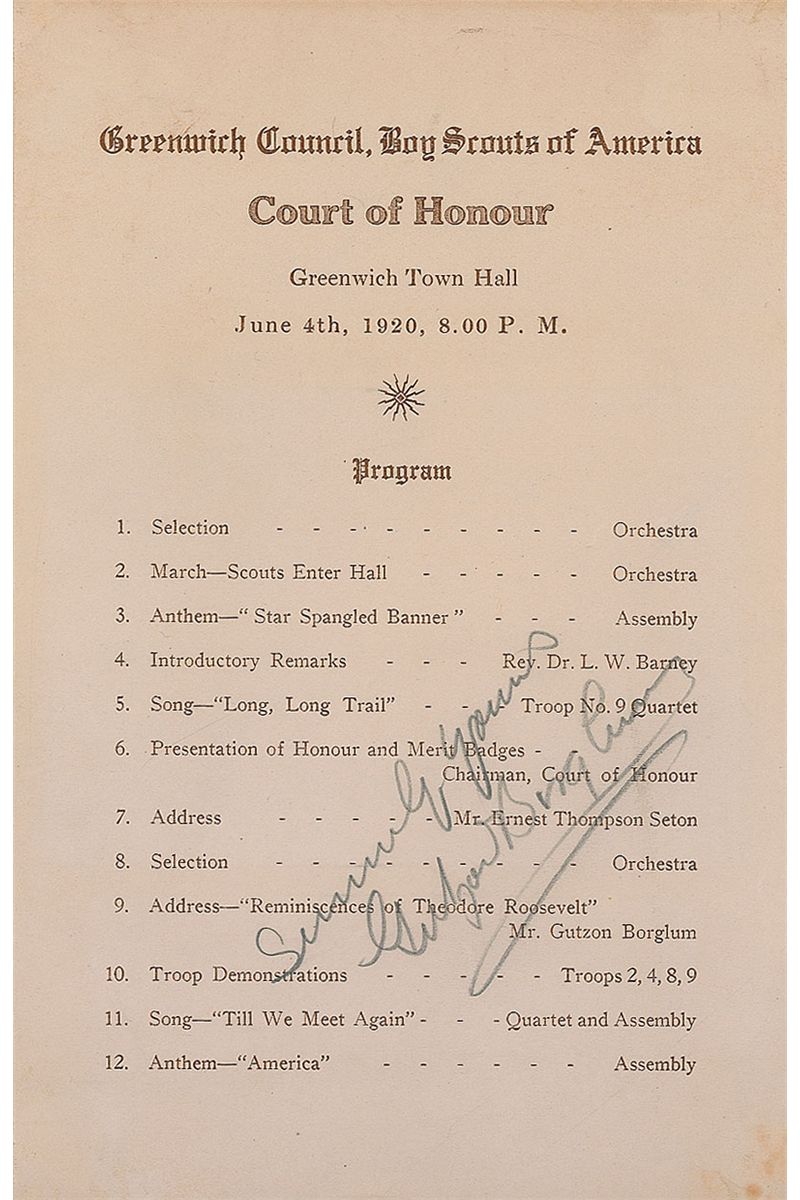 Greenwich Council, Boy Scouts of America
Court of Honour
Greenwich Town Hall
June 4th, 1920, 8.00 P. M.
Program
1. Selection - - - - - - - - - Orchestra
2. March—Scouts Enter Hall - - - - - Orchestra
3. Anthem—“ Star Spangled Banner ” - - - Assembly
4. Introductory Remarks - - - Rev. Dr. L. W. Barney
5. Song—“Long, Long Trail” - - Troop No. 9 Quartet
6. Presentation of Honour and Merit Badges - -
Chairman, Court of Honour
7. Address - - - - - Mr. Ernest Thompson Seton
8. Selection - - - - - - - - - Orchestra
9. Address—“Reminiscences of Theodore Roosevelt”
Mr. Gutzon Borglum
10. Troop Demonstrations - - - - - Troops 2, 4, 8, 9
11. Song—“Till We Meet Again” - - - Quartet and Assembly
12. Anthem—“America” - - - - - - Assembly
Yours
Gutzon Borglum